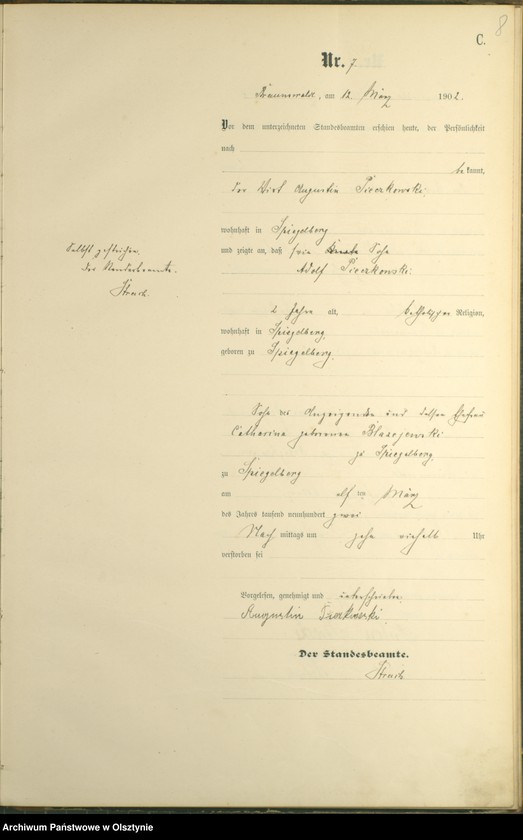 8
C.
Nr. 7.
Braunswalde, am 12. März 1902.
Vor dem unterzeichneten Standesbeamten erschien heute, der Persönlichkeit
nach
bekannt,
der Wirt Augustin Pieczkowski,
wohnhaft in Spiegelberg
und zeigte an, daß sein Sohn
Adolf Pieczkowski,
2 Jahre alt, katholischer Religion,
wohnhaft in Spiegelberg,
geboren zu Spiegelberg,
Sohn des Anzeigenden und dessen Ehefrau
Catharina geborenen Blaszejewski
zu Spiegelberg
zu Spiegelberg
am elften März
des Jahres tausend neunhundert zwei
Nachmittags um zehn Uhr
verstorben sei
Vorgelesen, genehmigt und unterschrieben.
Augustin Pieczkowski.
Der Standesbeamte.
der Standesbeamte.
Archiwum Państwowe w Olsztynie